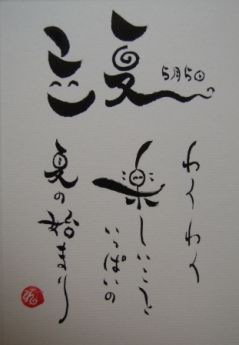 立夏
5月5日
わくわく
楽しいこと
いっぱいの
夏の始まり